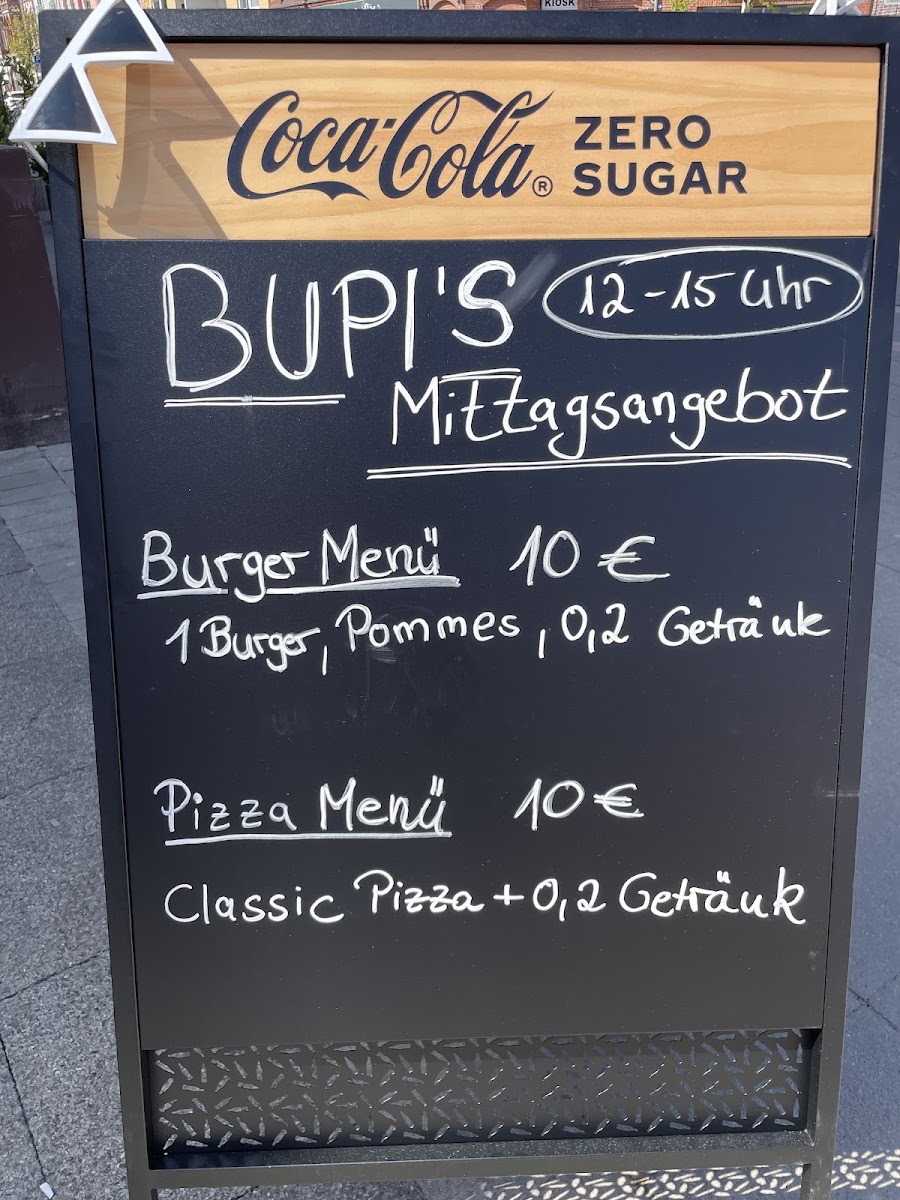 KIOSK
Coca-Cola® ZERO SUGAR
BUPI'S 12-15 Uhr
Mittagsangebot
Burger Menü 10 €
1 Burger, Pommes, 0,2 Getränk
Pizza Menü 10 €
Classic Pizza + 0,2 Getränk